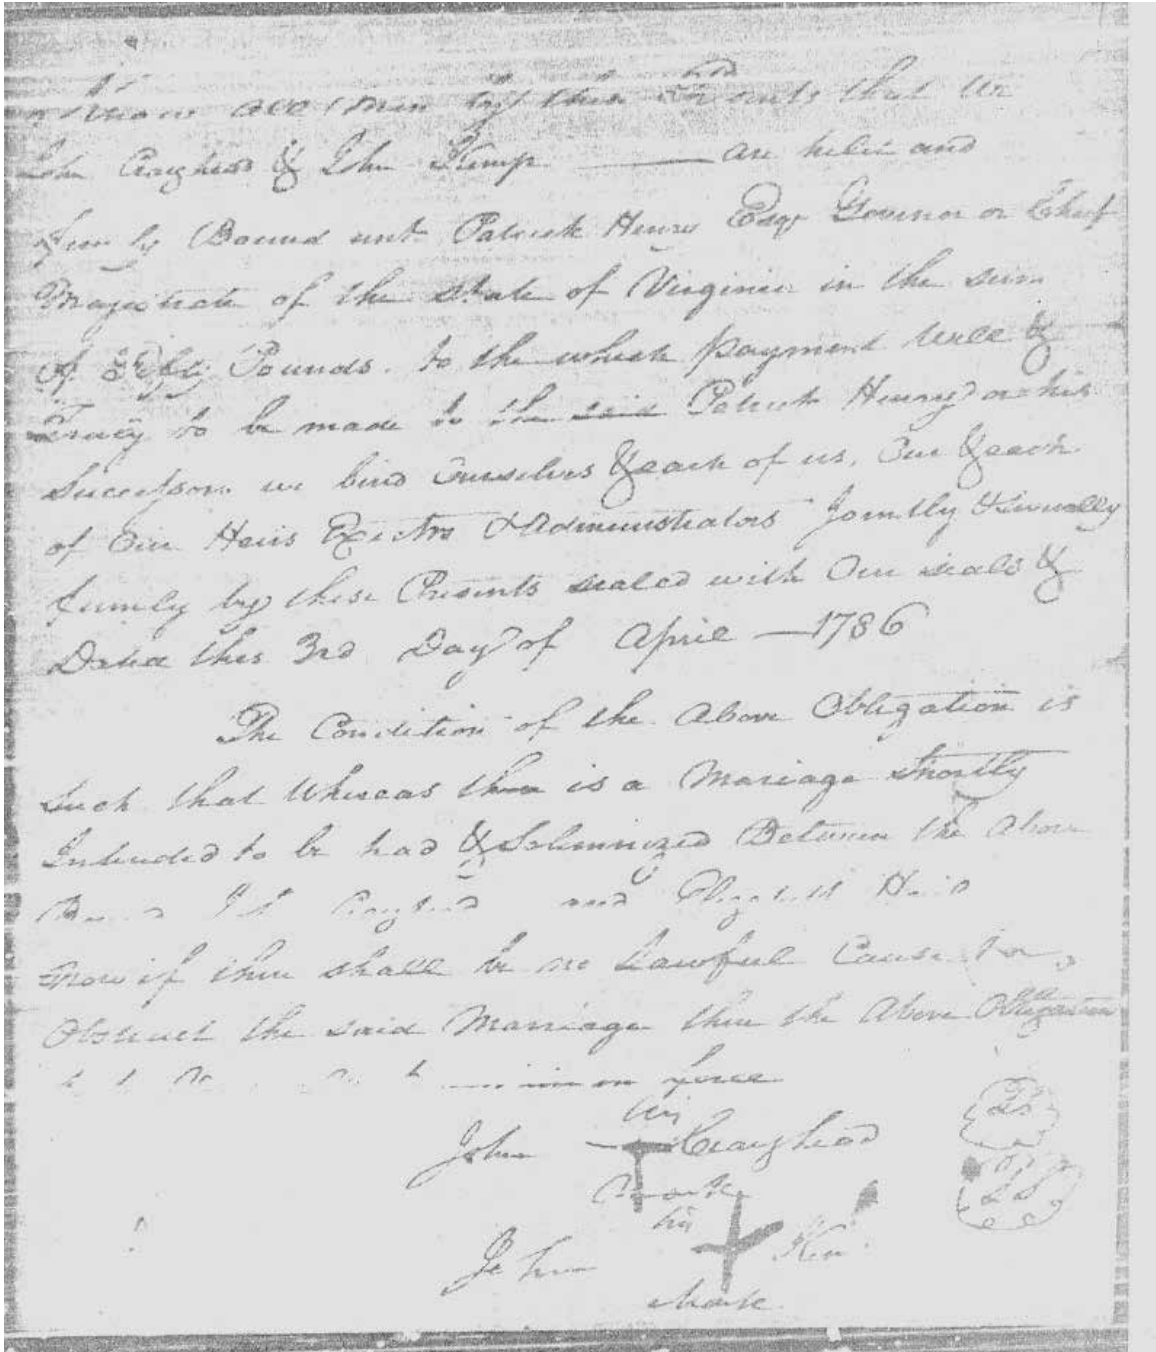 Know all men by these Presents that we
John Craghead & John Kemp are held and
firmly Bound unto Patrick Henry Esqr Govenor or Chief
Magistrate of the state of Virginia in the sum
of Fifty Pounds. to the which payment well &
Truly to be made to the said Patrick Henry or his
Successors we bind Ourselves & each of us, Our & each
of Our Heirs Exectrs & Administrators Jointly & Severally
firmly by these Presents sealed with Our seals &
Dated this 3rd Day of April — 1786
The Condition of the Above Obligation is
Such that Whereas there is a Mariage Shortly
Intended to be had & Solemnized Between the Above
Craghead and Elizabeth
Now if there shall be no Lawful Cause to
Obstruct the said Marriage then the Above Obligation
in force
John his Craighead LS
mark
his
John Kem LS
Mark